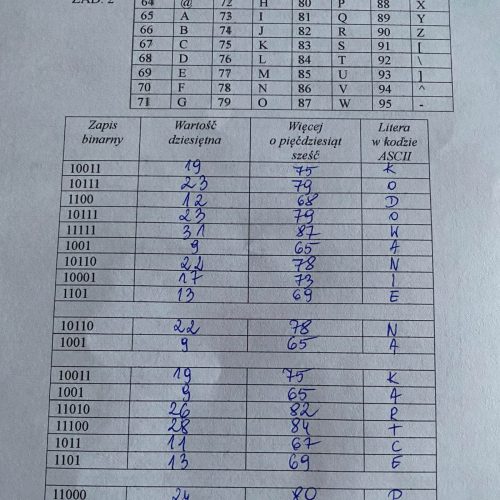 ZAD. 2
64 @ 72 H 80 P 88 X
65 A 73 I 81 Q 89 Y
66 B 74 J 82 R 90 Z
67 C 75 K 83 S 91 [
68 D 76 L 84 T 92 \
69 E 77 M 85 U 93 ]
70 F 78 N 86 V 94 ^
71 G 79 O 87 W 95 -
Zapis binarny Wartość dziesiętna Więcej o pięćdziesiąt sześć Litera w kodzie ASCII
10011 19 75 K
10111 23 79 O
1100 12 68 D
10111 23 79 O
11111 31 87 W
1001 9 65 A
10110 22 78 N
10001 17 73 I
1101 13 69 E
10110 22 78 N
1001 9 65 A
10011 19 75 K
1001 9 65 A
11010 26 82 R
11100 28 84 T
1011 11 67 C
1101 13 69 E
11000 24 80 P